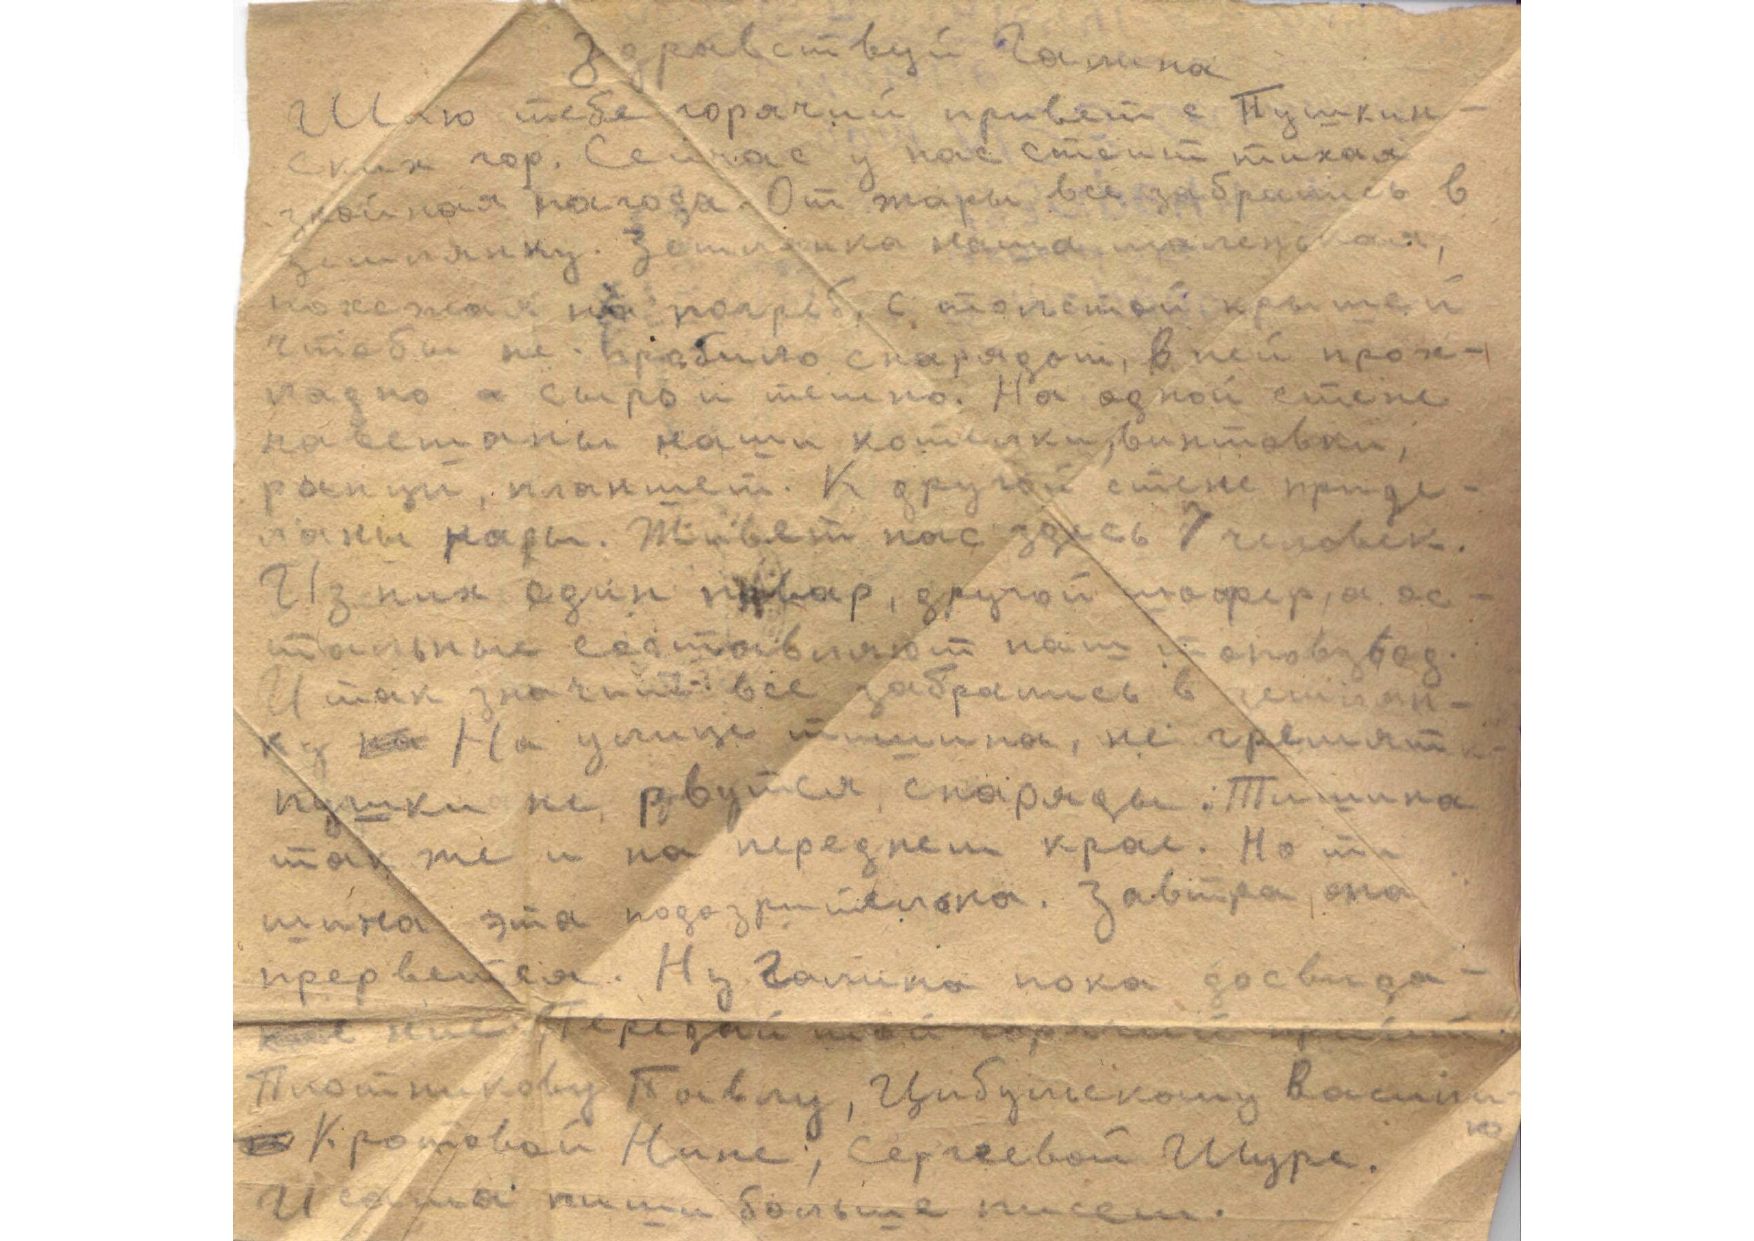 Здравствуй Галина
Шлю тебе горячий привет с Пушкин-
ских гор. Сейчас у нас стоит тихая
знойная погода. От жары все забрались в
землянку. Землянка наша маленькая,
похожая на погреб, с толстой крышей
чтобы не пробило снарядом, в ней прох-
ладно а сыро и темно. На одной стене
навешаны наши котелки, винтовки,
ранцы, планшет. К другой стене приде-
ланы нары. Живет нас здесь 7 человек.
Из них один повар, другой шофер, а ос-
тальные составляют наш топовзвод.
Итак значит все забрались в землян-
ку На улице тишина, не гремят
пушки не рвутся снаряды. Тишина
так же и на переднем крае. Но ти
шина эта подозрительна. Завтра она
прервется. Ну Галина пока досвида-
ние Передай мой горячий привет
Плотникову Павлу, Цибульскому Васили-
ю
Кротовой Нине, Сергеевой Шуре.
И сама пиши больше писем.